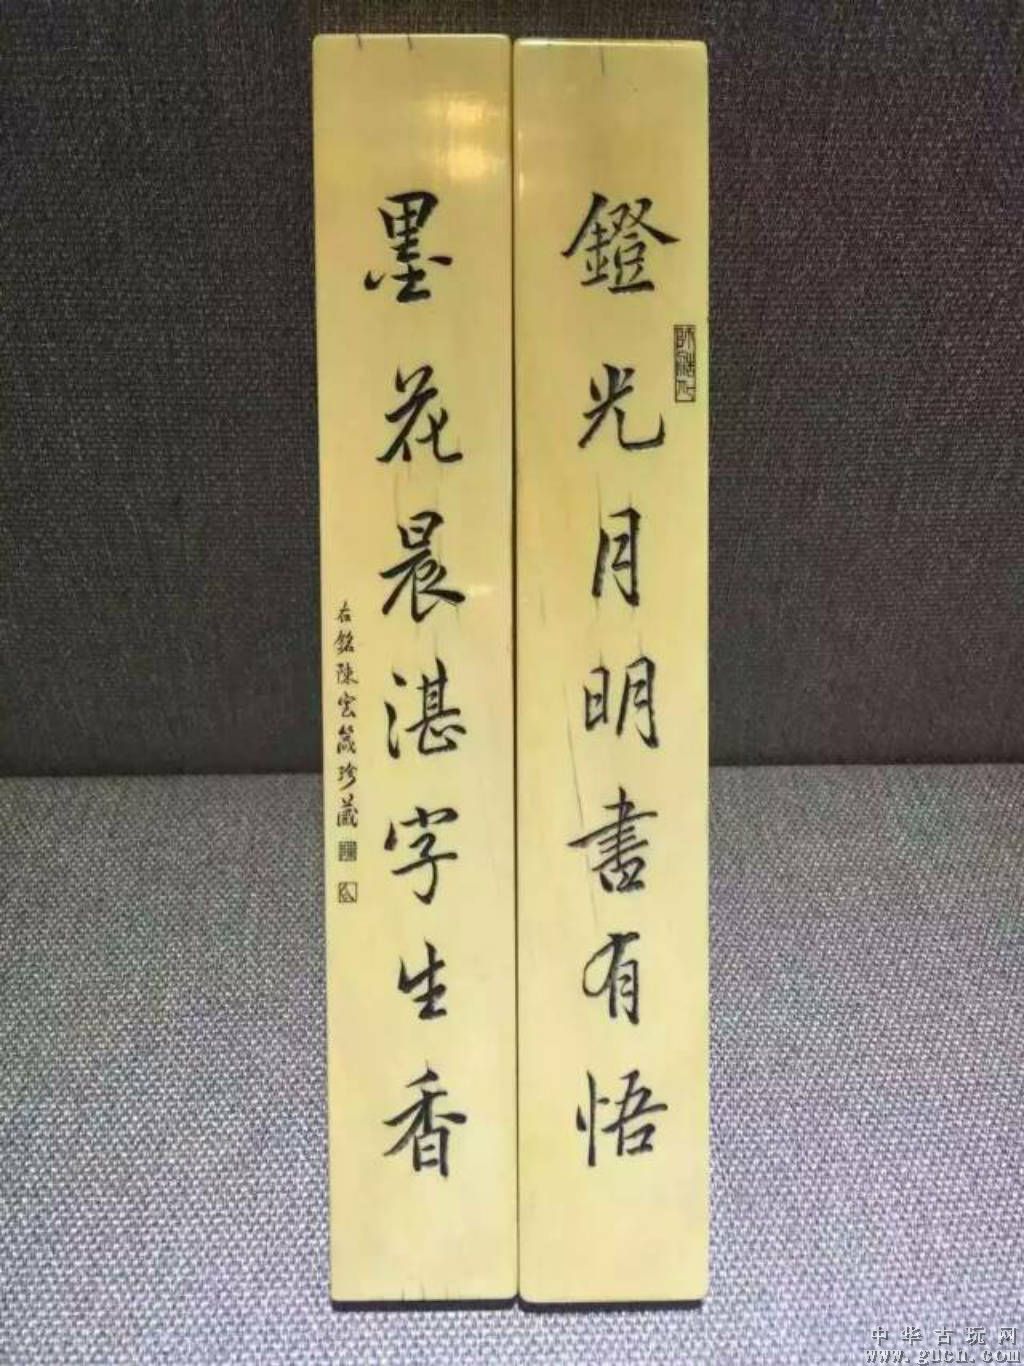 鐙光月明書有悟
墨花晨湛字生香
右銘陳雲箴珍藏
中华古玩网
www.gucn.com